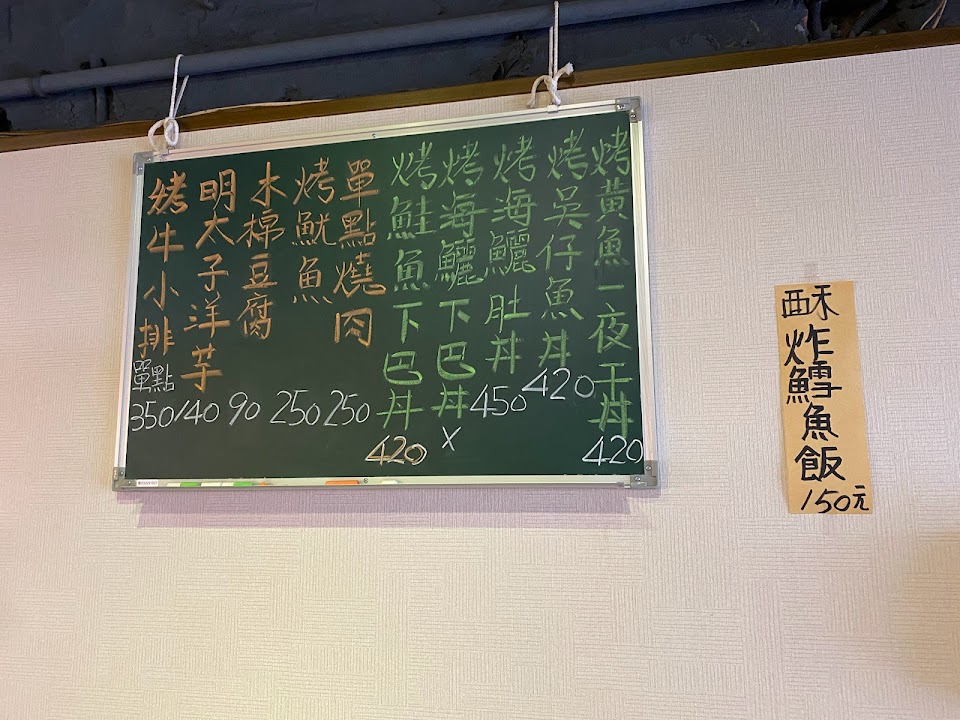 烤黃魚一夜干丼 420
烤吳仔魚丼 420
烤海鱺肚丼 450
烤海鱺下巴丼 X
烤鮭魚下巴丼 420
單點燒肉 250
烤魷魚 250
木棉豆腐 90
明太子洋芋 140
烤牛小排 單點 350
酥炸鱈魚飯
150元